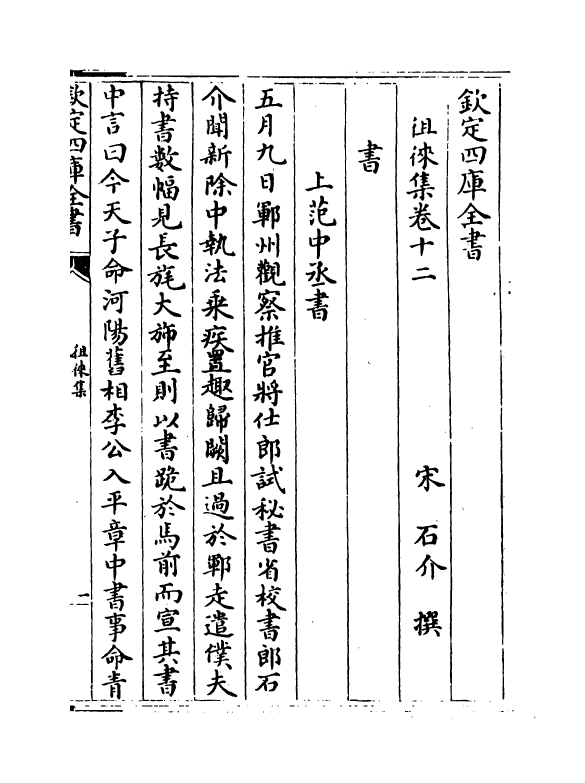 欽定四庫全書
徂徠集卷十二
宋 石介 撰
書
上范中丞書
五月九日鄆州觀察推官將仕郎試秘書省校書郎石
介聞新除中執法乘疾置趣歸闕且過於鄆走遣僕夫
持書數幅見長旄大斾至則以書跪於馬前而宣其書
中言曰今天子命河陽舊相李公入平章中書事命青
欽定四庫全書
徂徠集
一